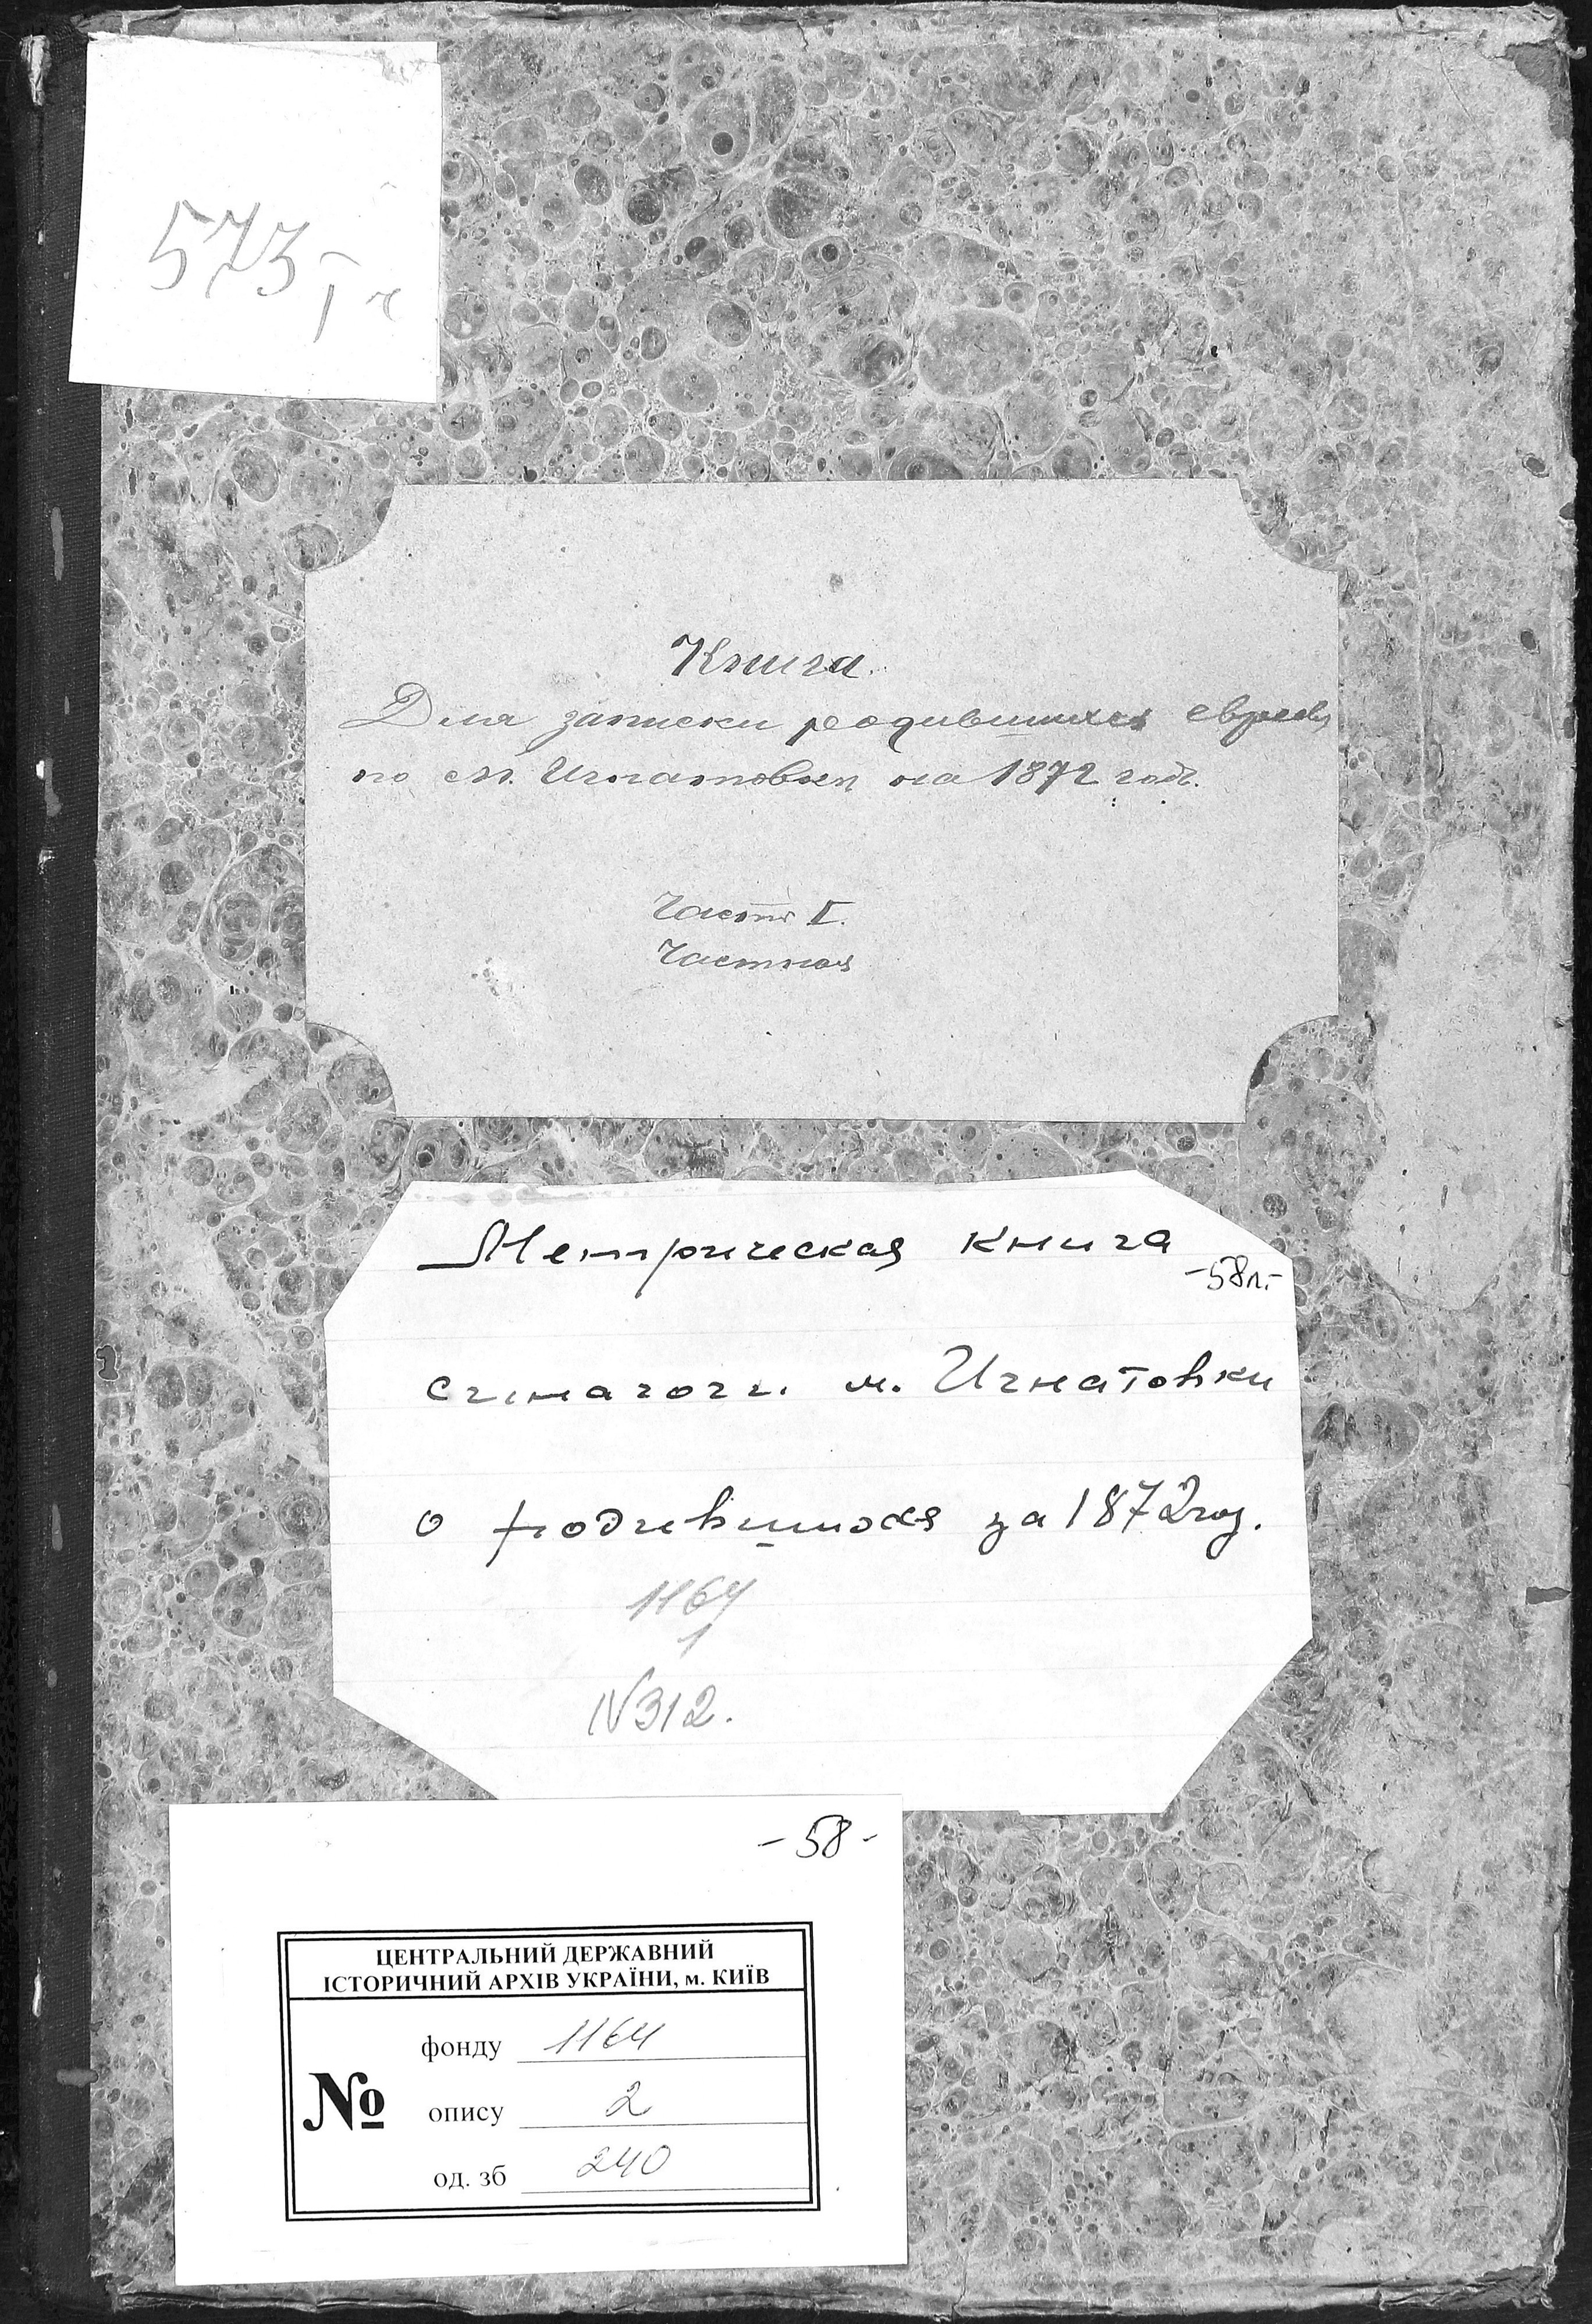 573, I ч
Книга.
Для записки родившихся евреевъ
по м. Игнатовки на 1872 годъ.
Часть I.
Частная
Метрическая книга
-58л.-
синагоги м. Игнатовки
о родившихся за 1872 год.
1164
1
N312.
- 58 -
ЦЕНТРАЛЬНИЙ ДЕРЖАВНИЙ
ІСТОРИЧНИЙ АРХІВ УКРАЇНИ, м. КИЇВ
фонду 1164
№ опису 2
од. зб 240